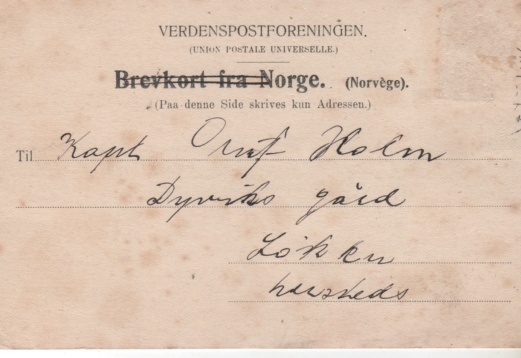 VERDENSPOSTFORENINGEN.
(UNION POSTALE UNIVERSELLE.)
Brevkort fra Norge. (Norvège).
(Paa denne Side skrives kun Adressen.)
Til Kapt Oluf Holm
Dyviks gård
Løkken